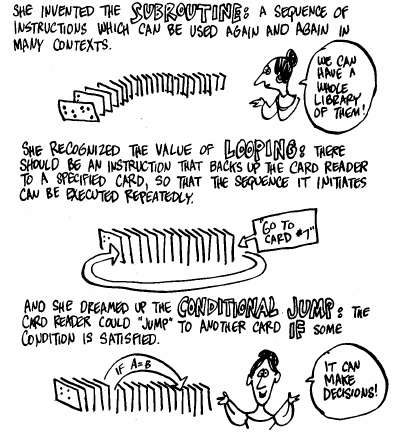 SHE INVENTED THE SUBROUTINE: A SEQUENCE OF
INSTRUCTIONS WHICH CAN BE USED AGAIN AND AGAIN IN
MANY CONTEXTS.
WE CAN
HAVE A
WHOLE
LIBRARY
OF THEM!
SHE RECOGNIZED THE VALUE OF LOOPING: THERE
SHOULD BE AN INSTRUCTION THAT BACKS UP THE CARD READER
TO A SPECIFIED CARD, SO THAT THE SEQUENCE IT INITIATES
CAN BE EXECUTED REPEATEDLY.
"GO TO
CARD #7"
AND SHE DREAMED UP THE CONDITIONAL JUMP: THE
CARD READER COULD "JUMP" TO ANOTHER CARD IF SOME
CONDITION IS SATISFIED.
IF A=B
IT CAN
MAKE
DECISIONS!